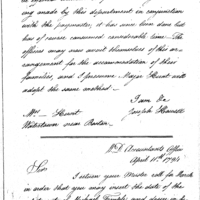 ing made by this department in conjunction
with the paymaster, it has now been done but
has of course consumed considerable time. The
officers may now avail themselves of this ar-
rangement for the accommodation of their
families, and I presume Major Stewart will
adopt the same method.
I am Sir
Mrs. Stewart Joseph Howell
Watertown near Boston.
W.D. Accountants Office
April 11th 1794
Sir
I return your Muster roll for March
in order that you may insert the date of the